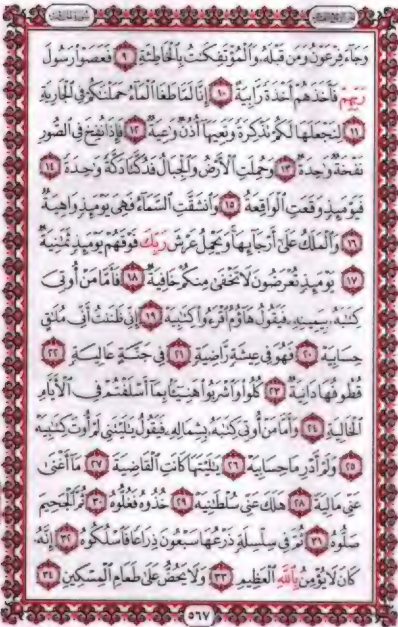 وَجَآءَ فِرْعَوْنُ وَمَن قَبْلَهُۥ وَٱلْمُؤْتَفِكَٰتُ بِٱلْخَاطِئَةِ ٩ فَعَصَوْا۟ رَسُولَ
رَبِّهِمْ فَأَخَذَهُمْ أَخْذَةً رَّابِيَةً ١٠ إِنَّا لَمَّا طَغَا ٱلْمَآءُ حَمَلْنَٰكُمْ فِى ٱلْجَارِيَةِ
١١ لِنَجْعَلَهَا لَكُمْ تَذْكِرَةً وَتَعِيَهَآ أُذُنٌ وَٰعِيَةٌ ١٢ فَإِذَا نُفِخَ فِى ٱلصُّورِ
نَفْخَةٌ وَٰحِدَةٌ ١٣ وَحُمِلَتِ ٱلْأَرْضُ وَٱلْجِبَالُ فَدُكَّتَا دَكَّةً وَٰحِدَةً ١٤
فَيَوْمَئِذٍ وَقَعَتِ ٱلْوَاقِعَةُ ١٥ وَٱنشَقَّتِ ٱلسَّمَآءُ فَهِىَ يَوْمَئِذٍ وَاهِيَةٌ
١٦ وَٱلْمَلَكُ عَلَىٰٓ أَرْجَآئِهَا وَيَحْمِلُ عَرْشَ رَبِّكَ فَوْقَهُمْ يَوْمَئِذٍ ثَمَٰنِيَةٌ
١٧ يَوْمَئِذٍ تُعْرَضُونَ لَا تَخْفَىٰ مِنكُمْ خَافِيَةٌ ١٨ فَأَمَّا مَنْ أُوتِىَ
كِتَٰبَهُۥ بِيَمِينِهِۦ فَيَقُولُ هَآؤُمُ ٱقْرَءُوا۟ كِتَٰبِيَهْ ١٩ إِنِّى ظَنَنتُ أَنِّى مُلَٰقٍ
حِسَابِيَهْ ٢٠ فَهُوَ فِى عِيشَةٍ رَّاضِيَةٍ ٢١ فِى جَنَّةٍ عَالِيَةٍ ٢٢
قُطُوفُهَا دَانِيَةٌ ٢٣ كُلُوا۟ وَٱشْرَبُوا۟ هَنِيٓـًٔۢا بِمَآ أَسْلَفْتُمْ فِى ٱلْأَيَّامِ
ٱلْخَالِيَةِ ٢٤ وَأَمَّا مَنْ أُوتِىَ كِتَٰبَهُۥ بِشِمَالِهِۦ فَيَقُولُ يَٰلَيْتَنِى لَمْ أُوتَ كِتَٰبِيَهْ
٢٥ وَلَمْ أَدْرِ مَا حِسَابِيَهْ ٢٦ يَٰلَيْتَهَا كَانَتِ ٱلْقَاضِيَةَ ٢٧ مَآ أَغْنَىٰ
عَنِّى مَالِيَهْ ٢٨ هَلَكَ عَنِّى سُلْطَٰنِيَهْ ٢٩ خُذُوهُ فَغُلُّوهُ ٣٠ ثُمَّ ٱلْجَحِيمَ
صَلُّوهُ ٣١ ثُمَّ فِى سِلْسِلَةٍ ذَرْعُهَا سَبْعُونَ ذِرَاعًا فَٱسْلُكُوهُ ٣٢ إِنَّهُۥ
كَانَ لَا يُؤْمِنُ بِٱللَّهِ ٱلْعَظِيمِ ٣٣ وَلَا يَحُضُّ عَلَىٰ طَعَامِ ٱلْمِسْكِينِ ٣٤
٥٦٧